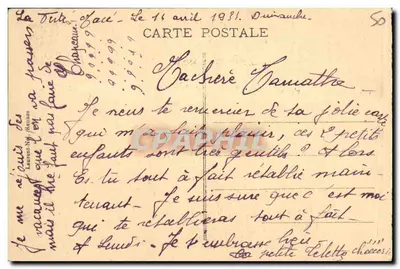 La Ferté-Macé - Le 14 avril 1931. Dimanche
CARTE POSTALE
Ma chère
Je veux te remercier de ta jolie carte
qui m'a fait plaisir, ces 2 petits
enfants sont très gentils ? Alors
Es tu tout à fait rétablie main
tenant. Je suis sure que c'est moi
qui te rétablierai tout à fait
A lundi. Je t'embrasse bien
ta petite chérie
Je me réjouis des
vacances que l'on va passer
mais il ne faut pas faire de